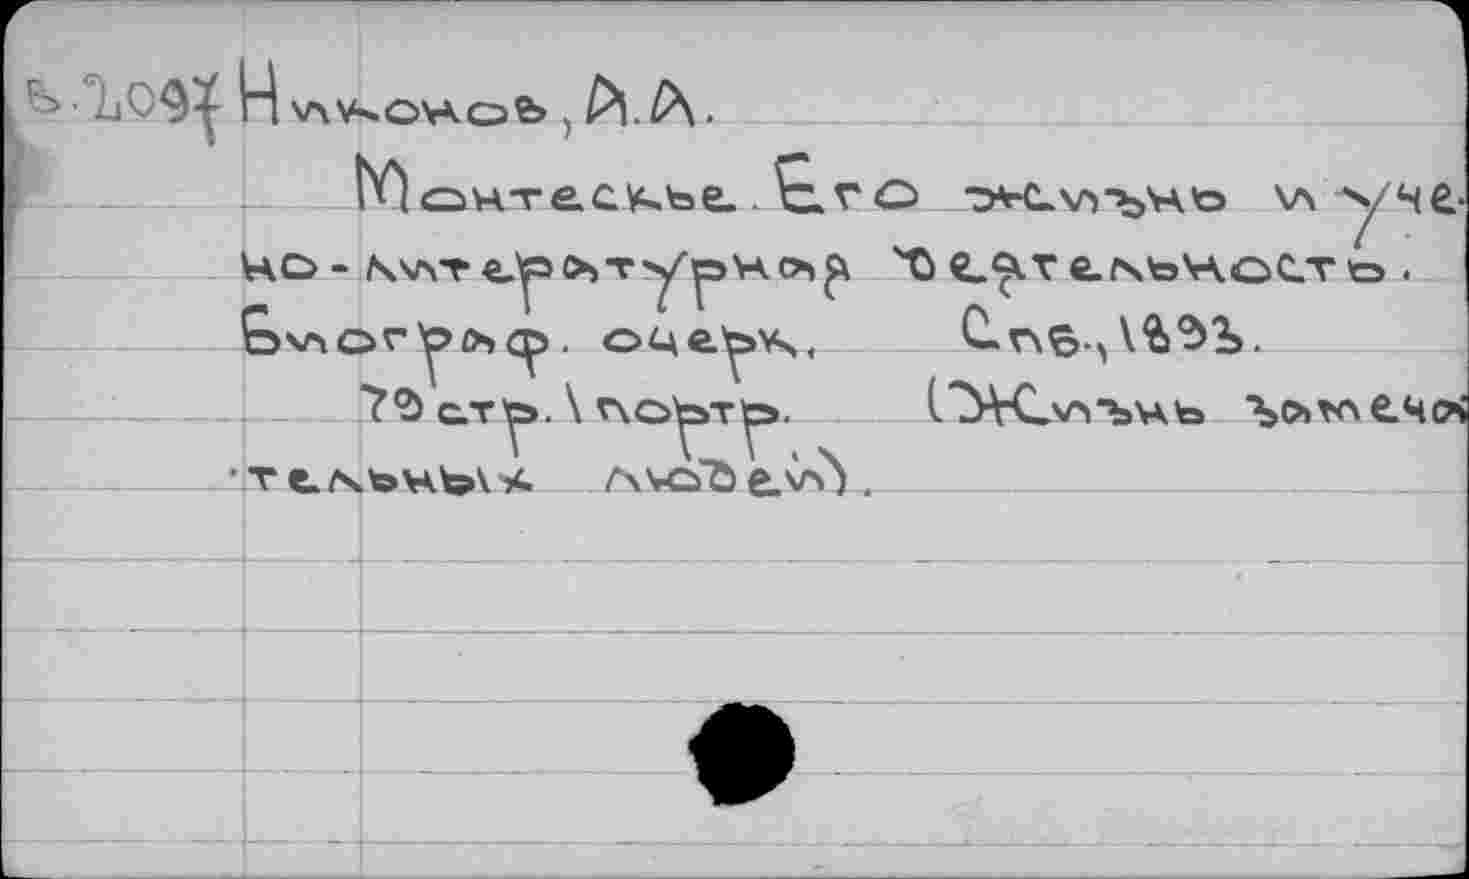 В.2097 Никонов, А.А.
Монтескье. Его жизнь и уче-
но-литературная деятельность.
Биограф. очерк. Спб., 1893.
79 стр. 1 портр. (Жизнь замеча
тельных людей).